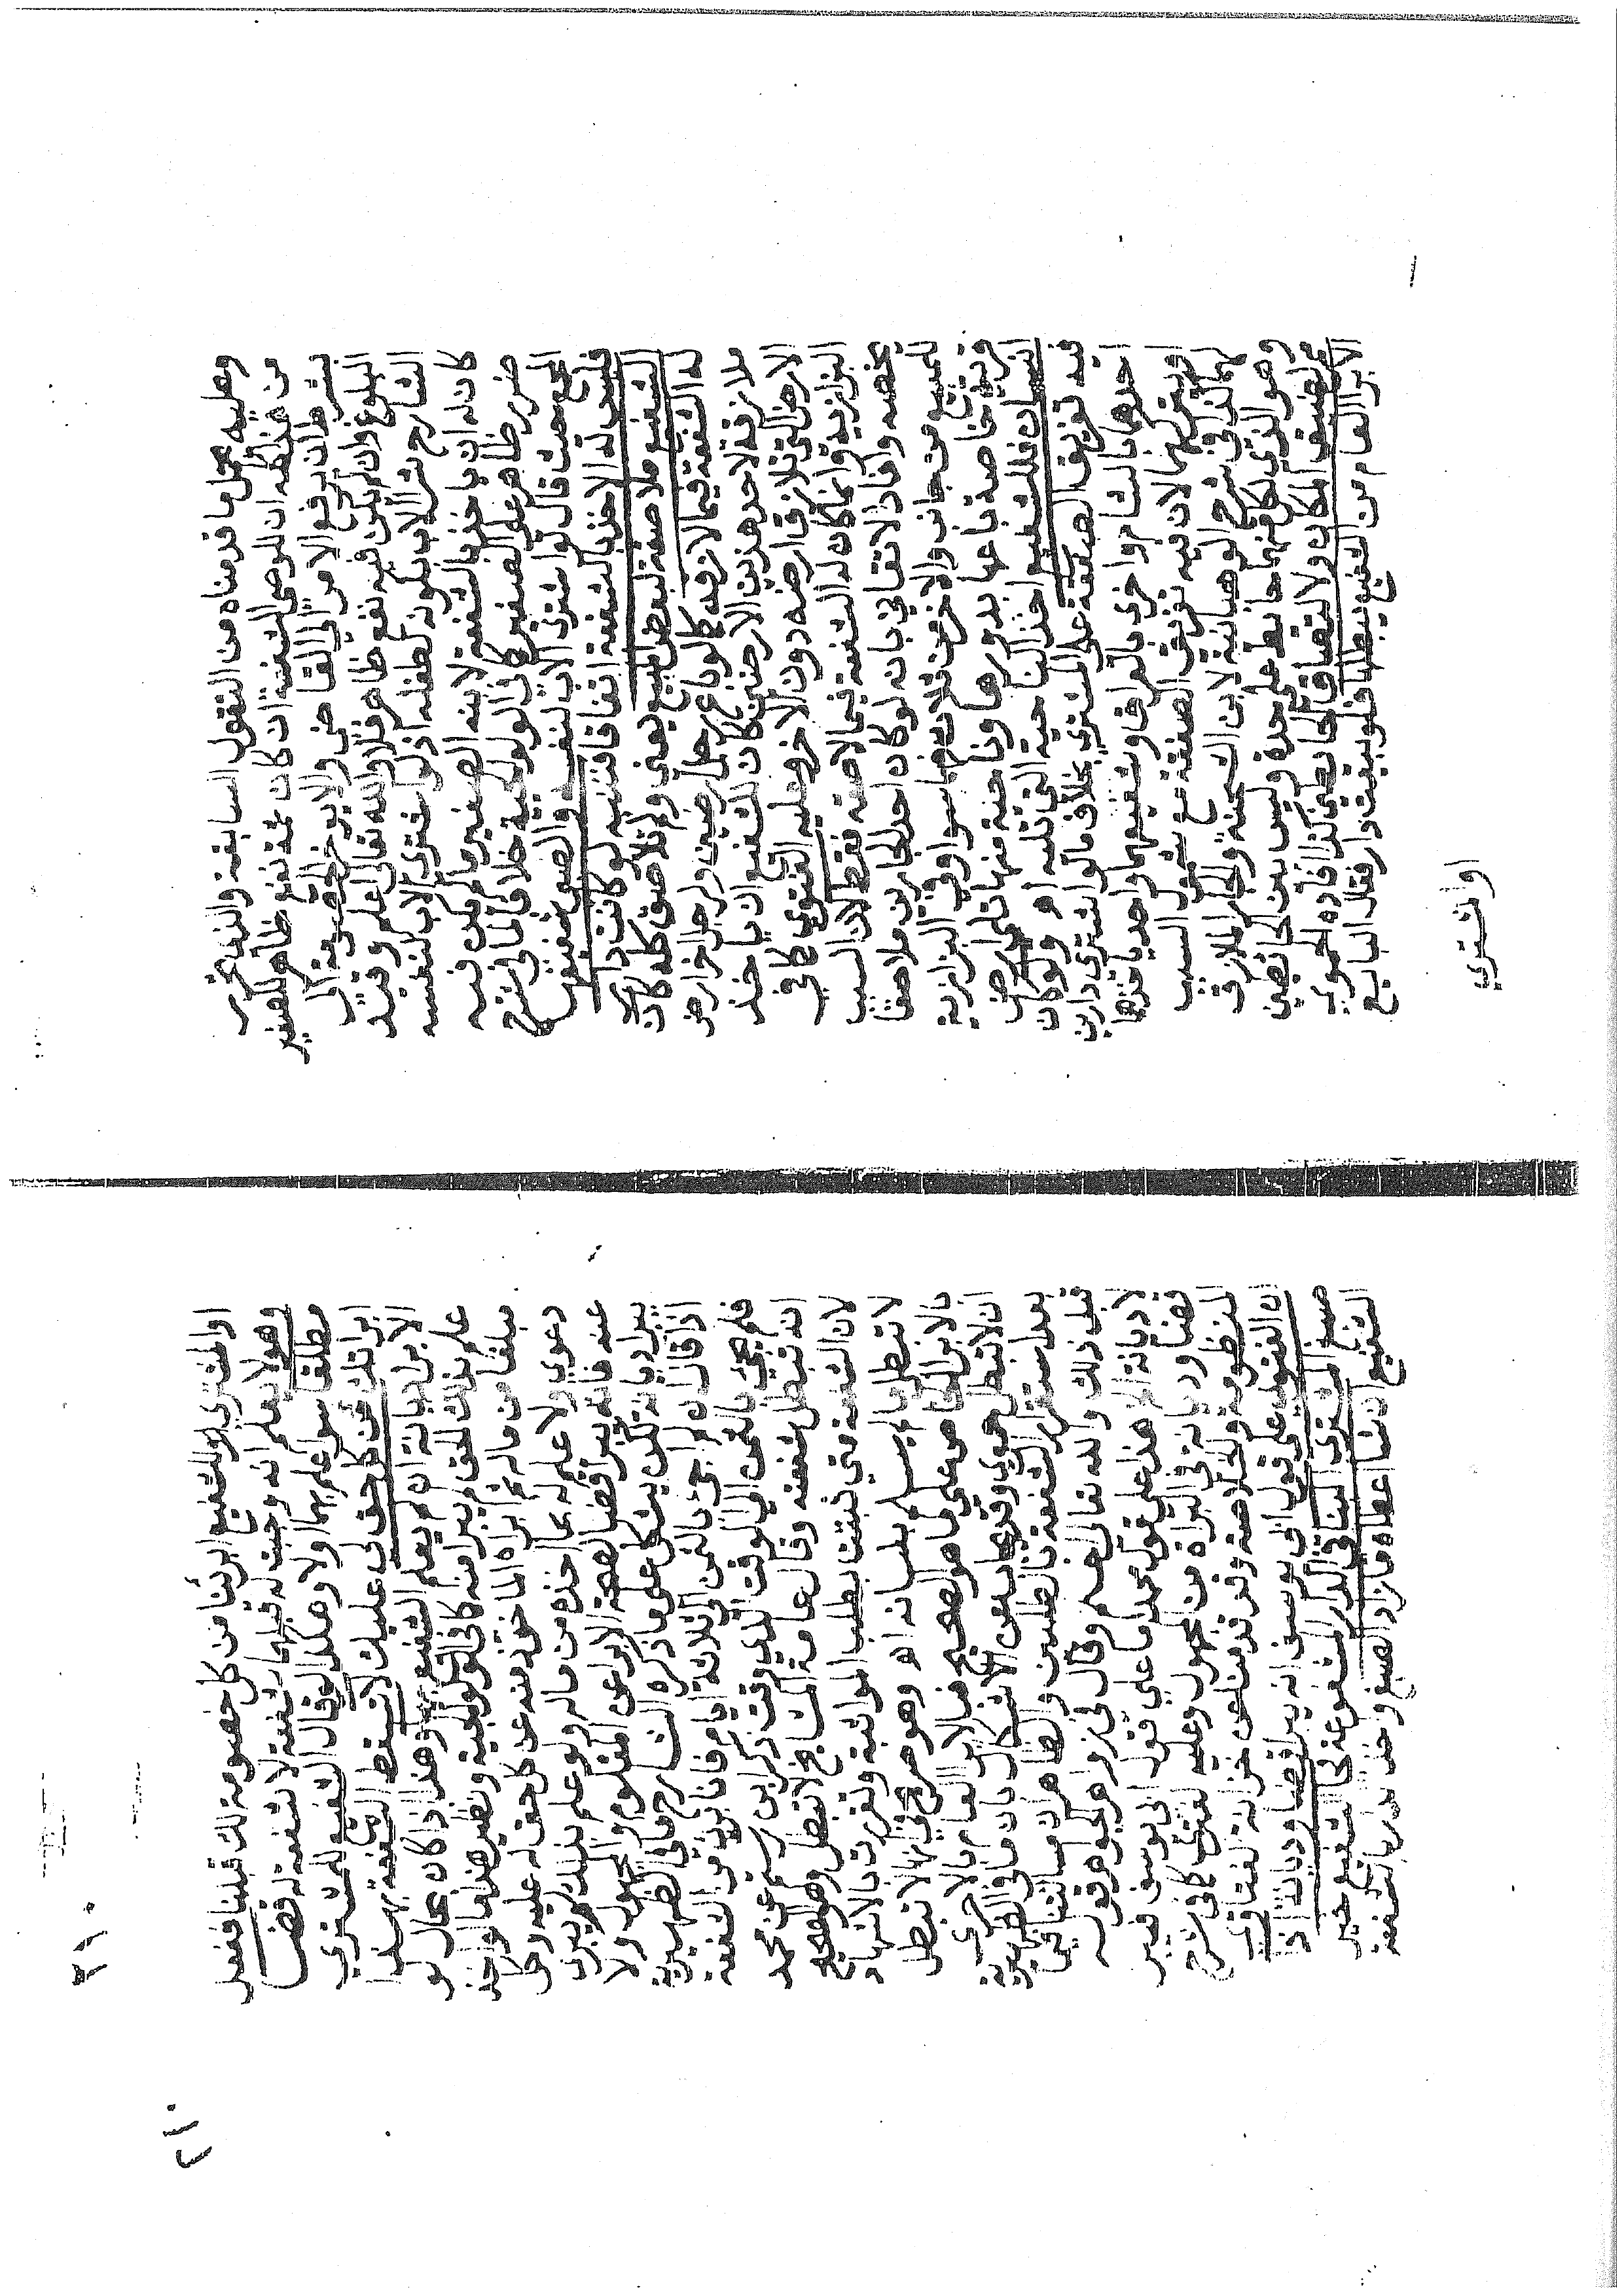 وعليه يحمل ما قدمناه من النقول السابقة والذي تحرر
من هذا كله ان للوصي الشفعة ان كان ثمة نفع ظاهر للصغير
بشرط ان يرفع الامر الى القاضي والا يؤخر الى
البلوغ وان لم يكن فيه نفع ظاهر فلا والله تعالى اعلم وقيد
الشارح شرا الاب بكونه لطفله اذ لو اشترى الاب لنفسه
كان له ان ياخذ بالشفعة لابنه الصغير ما لم يكن فيه
ضرر ظاهر على الصغير كما في الولوالجية خلافا لما في شرح
المجمع حيث قال لو اشترى الاب لنفسه والصبي شفيعها
فليس له الاخذ بالشفعة اتفاقا قنية لو كانت دار
الشفيع ملاصقة لبعض المبيع يعني ولم تلاصق كله كان
له الشفعة فيما لازقه كما لو باع رجل ارضين ولرجل اخر ارض
ملازقة لاحد هذين الارضين كان للشفيع ان ياخذ
الارض التي تلازق ارضه دون الاخرى وعليه الفتوى كما في
البزازية وانما كان له الشفعة فيما لاصقه فقط لان السبب
يخصه وافاد الاتقاني بانه لو كان احد الجارين ملاصقا
للمبيع من جانب والاخر من ثلاثة فهما سوا وفي البزازية
قرية خاصة باعها بدورها وناحية منها تلي ارض
انسان فللشفيع اخذ الناحية التي تليه اه ولو كان
فيه تفريق الصفقة على المشتري بخلاف ما لو اشترى دارين
احدهما بالشام واخرى بالعراق وشفيعهما واحد ياخذهما
او يتركهما لان فيه تفريق الصفقة مع شمول السبب
لهما كذا في شرح الوهبانية لابن الشحنة والجار الملازق
وهو الذي لكل منهما حائط على حدة وليس بين الحائطين
ممر لضيق المكان او لالتصاق الحائطين كذا افاده الحموي
الابرا العام من الشفيع يبطلها فلو بيعت دار فقال البايع
او المشتري
او المشتري للشفيع ابرئنا من كل خصومة لك قبلنا ففعل
وهو لا يعلم انه وجبت له قبلهما شفعة لا شفعة له قضا
مطلقا سوا علم بها او لا وهكذا لو قال الشفيع للمشتري
ابراتك من كل حق لي عليك لا تسقط الشفعة بهذا
الابرا ديانة ان لم يعلم الشفيع وهذا اذا كان بحال لو
علم بذلك الحق لم يبرا منه كما في الولوالجية ونظير هذا ما لو اخذ
مبلغا من ماله ثم ابراه الماخوذ منه عن كل حق له عليه وكل
دعوى ولا علم له بما اخذه من ماله ولو علم بذلك لم يبرا
عنه فانه يبرا قضا لصحة الابرا عن المعلوم والمجهول ولا
يبرا ديانة لكن يشكل على ما ذكره الشارح ما في الظهيرية
اذا قال ان لم اجئ بالثمن الى ثلاثة ايام فانا برئ من الشفعة
فلم يجئ بالثمن الى الوقت الذي وقت ذكر ابن رستم عن محمد
انه تبطل شفعته وقال عامة المشايخ لا تبطل وهو الصحيح
لان الشفعة متى ثبتت بطلب المواثبة وتقررت بالاشهاد
لا تبطل ما لم يسلم بلسانه اه وهو صريح في انها لا تبطل
بالابرا الخاص على ما هو الصحيح فالابرا العام بالاحرى
ان لا تبطل حموي وقد يجاب عن الاشكال بان ما في الظهيرية
بعد استقرار الشفعة بالطلبين والظاهر ان مسالتنا فيما
قبل ذلك والله تعالى اعلم وقال في زواهر الجواهر قوله
لا ديانة الا هذا على قول محمد اما على قول ابي يوسف فيبرا
قضا وديانة في البراة من المجهول وعليه الفتوى كما في شرح
المنظومة والخلاصة وقد قدمنا عن خزانة الفتاوي
ان الفتوى على قول ابي يوسف انه يبرا قضا وديانة اذا
صبغ المشتري البنا في الدار المشفوعة نحا الشفيع خير
الشفيع ان شا اعطاه ما زاد الصبغ واخذ الدار بالشفعة
٢١٠
٢١٠